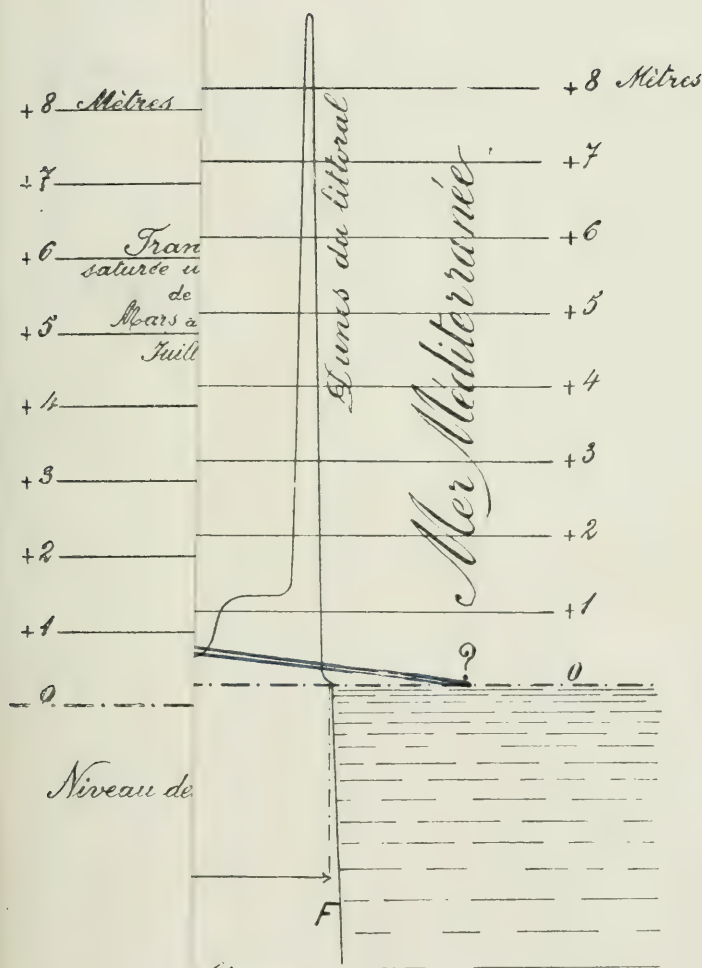 +8 Mètres
+7
+6
Tran
saturée u
de
+5
Mars à
Juill
+4
+3
+2
+1
0
Niveau de
Dunes du littoral
Mer Méditerranée
+8 Mètres
+7
+6
+5
+4
+3
+2
+1
?
0
F